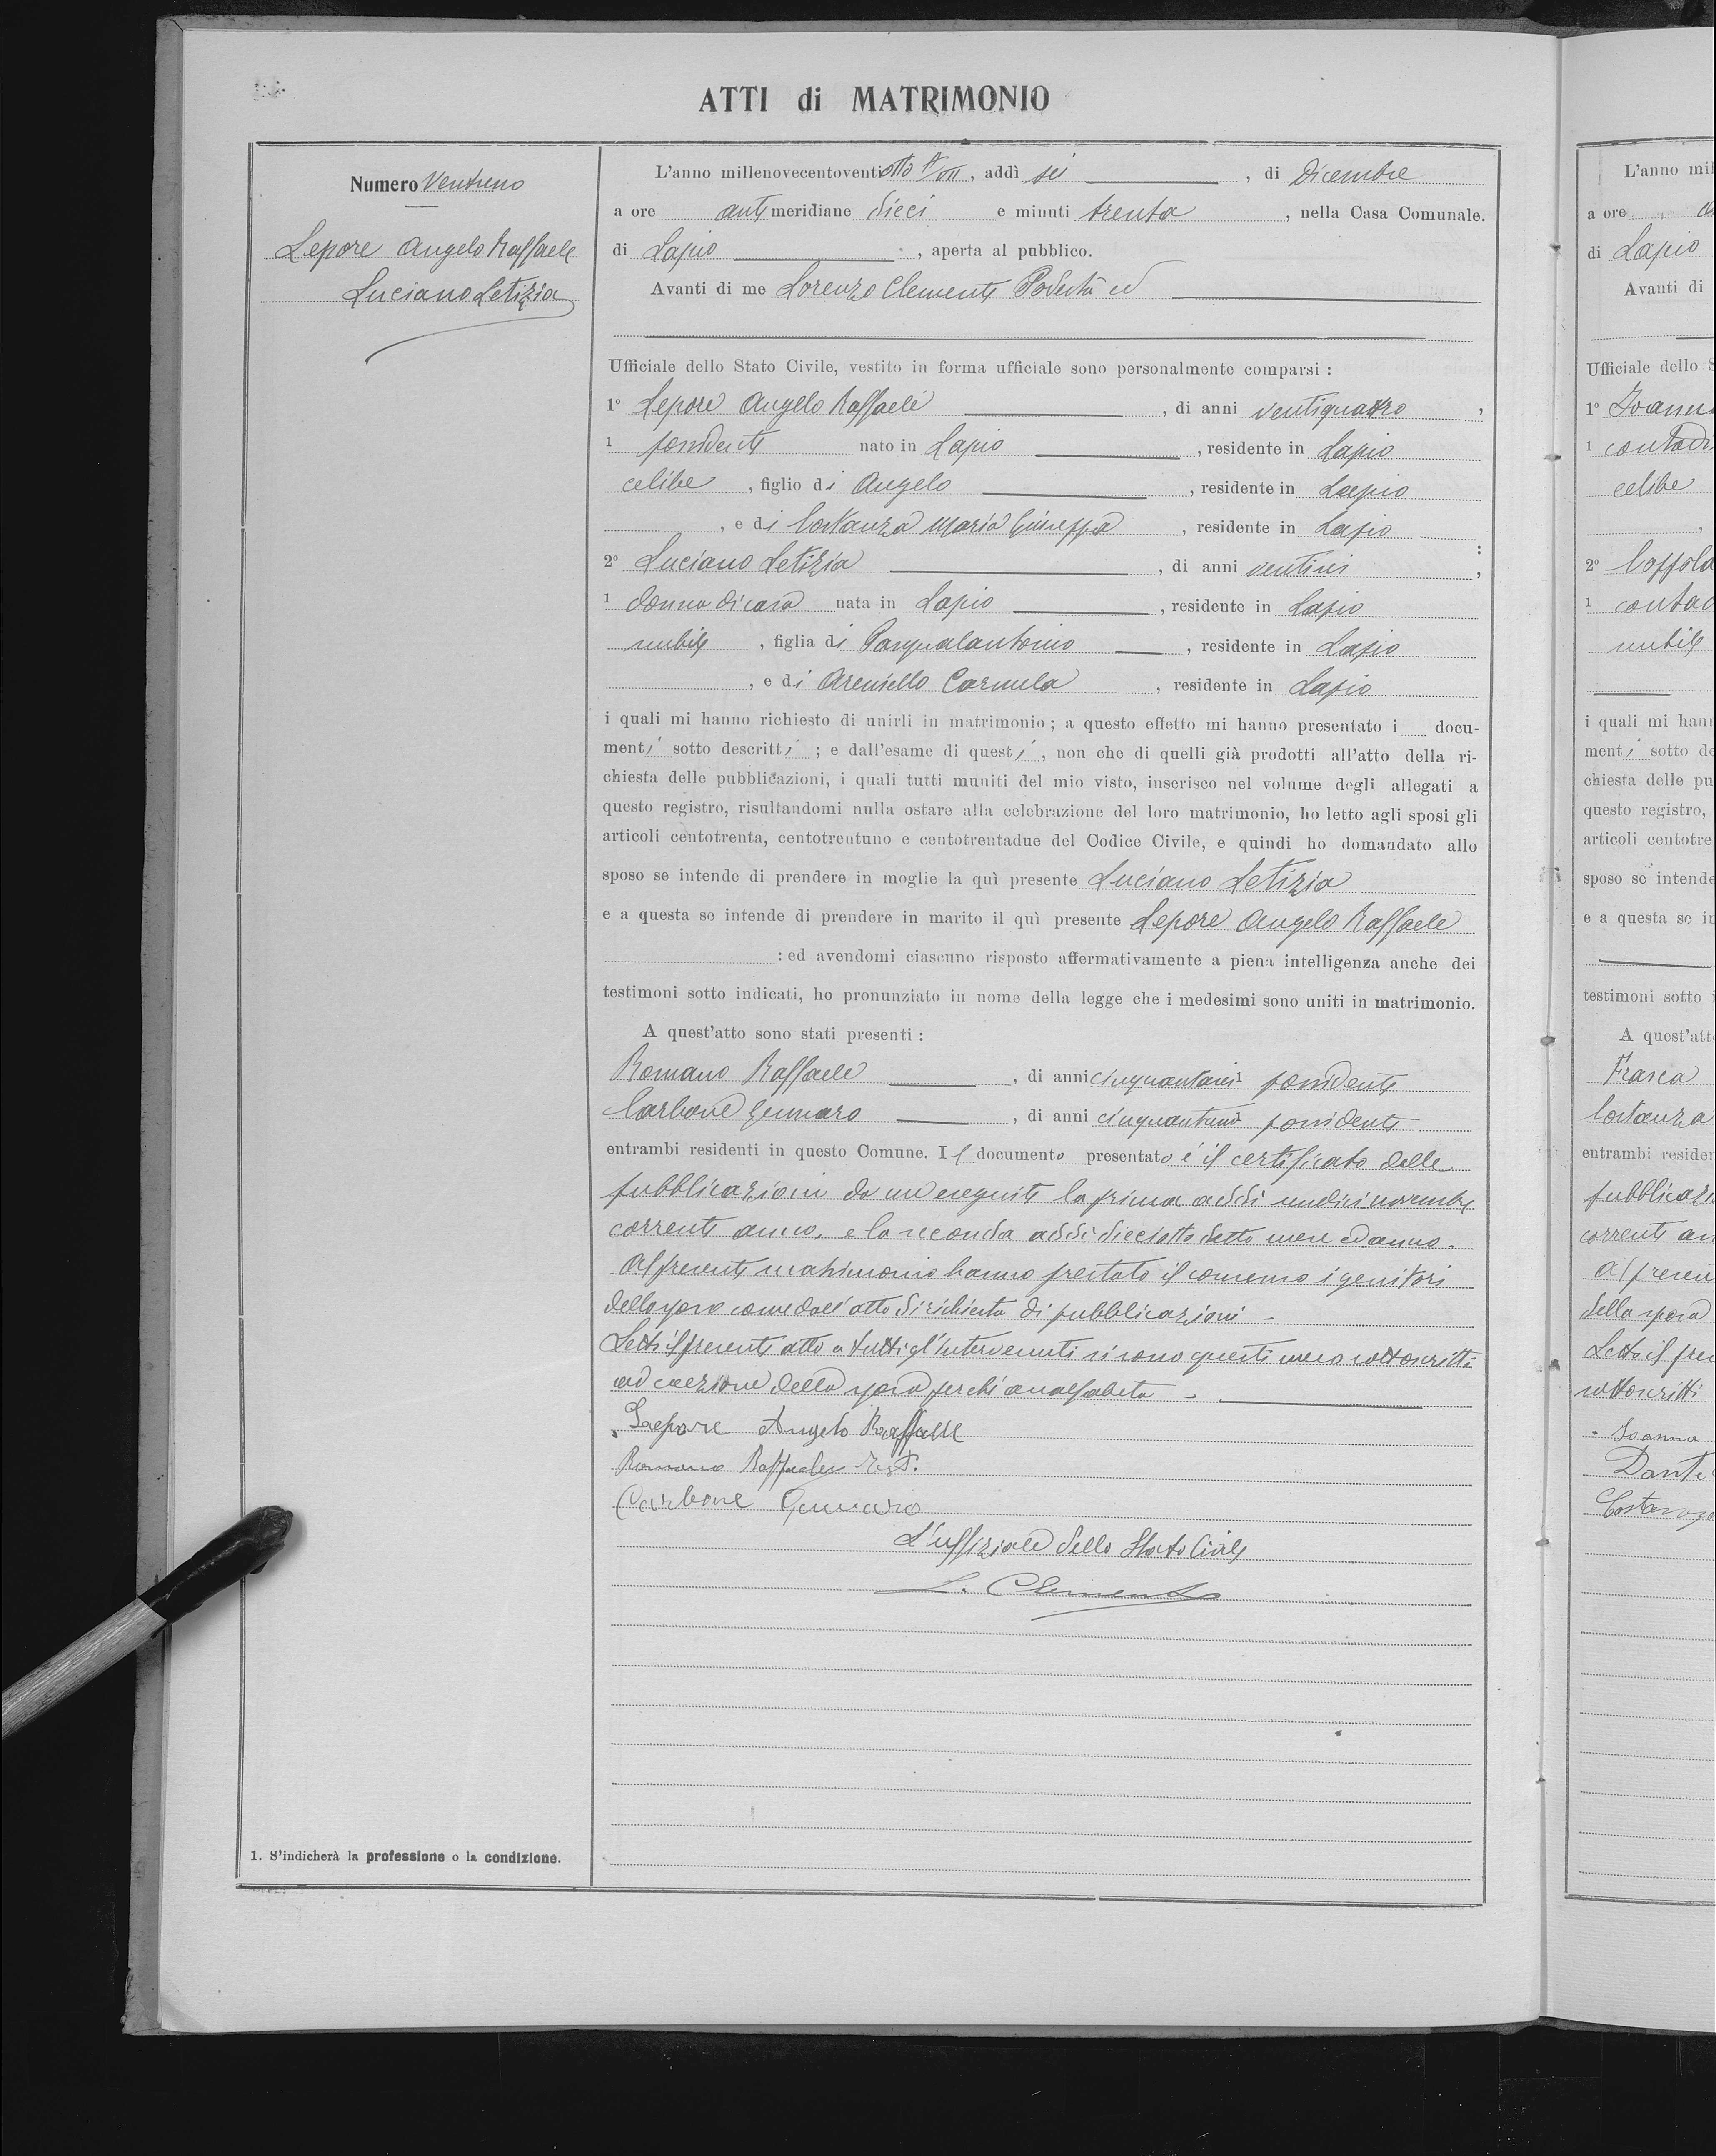 ATTI di MATRIMONIO
Numero Ventuno
Lepore Angelo Raffaele
Luciano Letizia
1. S'indicherà la professione o la condizione.
L'anno millenovecentoventiotto A° VII, addì sei, di Dicembre
a ore antimeridiane dieci e minuti trenta, nella Casa Comunale.
di Lapio, aperta al pubblico.
Avanti di me Lorenzo Clemente Podestà ed
Ufficiale dello Stato Civile, vestito in forma ufficiale sono personalmente comparsi :
1° Lepore Angelo Raffaele, di anni ventiquattro,
1 possidente nato in Lapio, residente in Lapio
celibe, figlio di Angelo, residente in Lapio
, e di Costanza Maria Giuseppa, residente in Lapio :
2° Luciano Letizia, di anni ,
1 donna di casa nata in Lapio, residente in Lapio
nubile, figlia di Pasqualantonio, residente in Lapio
, e di Areniello Carmela, residente in Lapio
i quali mi hanno richiesto di unirli in matrimonio ; a questo effetto mi hanno presentato i docu-
menti sotto descritti ; e dall'esame di questi, non che di quelli già prodotti all'atto della ri-
chiesta delle pubblicazioni, i quali tutti muniti del mio visto, inserisco nel volume degli allegati a
questo registro, risultandomi nulla ostare alla celebrazione del loro matrimonio, ho letto agli sposi gli
articoli centotrenta, centotrentuno e centotrentadue del Codice Civile, e quindi ho domandato allo
sposo se intende di prendere in moglie la quì presente Luciano Letizia
e a questa se intende di prendere in marito il quì presente Lepore Angelo Raffaele
: ed avendomi ciascuno risposto affermativamente a piena intelligenza anche dei
testimoni sotto indicati, ho pronunziato in nome della legge che i medesimi sono uniti in matrimonio.
A quest'atto sono stati presenti :
Romano Raffaele, di anni cinquantasei possidente
Carbone Gennaro, di anni cinquantuno possidente
entrambi residenti in questo Comune. Il documento presentato è il certificato delle
pubblicazioni da me eseguite la prima addì undici novembre
corrente anno, e la seconda addì dieciotto detto mese ed anno.
Al presente matrimonio hanno prestato il consenso i genitori
dello sposo come dall'atto di richiesta di pubblicazioni -
Letto il presente atto a tutti gl'intervenuti si sono questi meco sottoscritti
ad eccezione della sposa perchè analfabeta -
Lepore Angelo Raffaele
Romano Raffaele Test.
Carbone Gennaro
L'uffiziale dello Stato Civile
L. Clemente
L'anno mil
a ore
di Lapio
Avanti di
Ufficiale dello S
1°
1 contadi
celibe
,
2°
1 contad
nubile
i quali mi hann
menti sotto de
chiesta delle pu
questo registro,
articoli centotre
sposo se intende
e a questa se in
testimoni sotto i
A quest'atto
Frasca
Costanza
entrambi residen
pubblicazi
corrente an
Al presen
della sposa
Letto il pre
sottoscritti
Joanna
Dante
Costanza